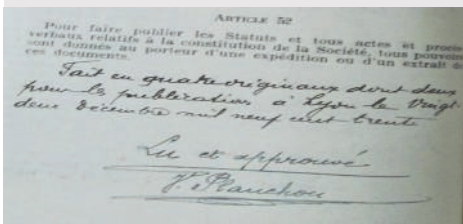 ARTICLE 52
Pour faire publier les Statuts et tous actes et procès-
verbaux relatifs à la constitution de la Société, tous pouvoirs
sont donnés au porteur d'une expédition ou d'un extrait de
ces documents.
Fait en quatre originaux dont deux
pour les publications à Lyon le Vingt
deux Décembre mil neuf cent trente
Lu et approuvé
V. Planchon